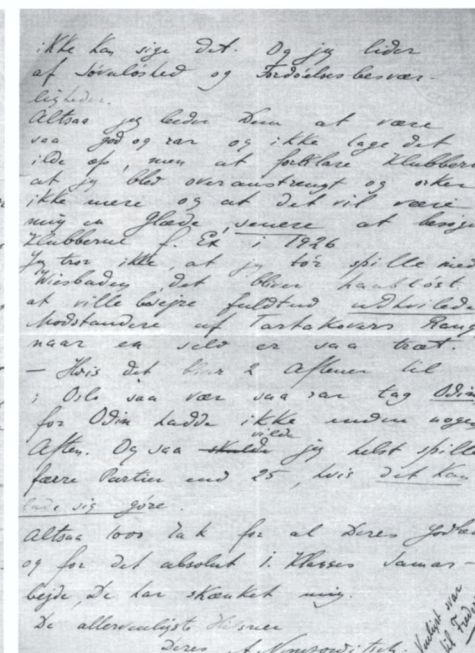 ikke kan sige det. Og jeg lider
af Søvnløshed og Fordøielsesbesvær-
ligheder.
Altsaa jeg beder Dem at være
saa god og rar og ikke tage det
ilde op, men at forklare Klubberne
at jeg blev overanstrengt og orker
ikke mere og at det vil være
mig en Glæde, senere at besøge
Klubberne f. Ex i 1926
Jeg tror ikke, at jeg tør spille med
Wiesbaden, det bliver haabløst
at ville besejre fuldtud udhvilede
Modstandere af Tartakovers Rang
naar en selv er saa træt.
– Hvis det blir 2 Aftener til
i Oslo saa vær saa rar tag Odin
for Odin hadde ikke nogen
Aften. Og saa vilde jeg helst spille
færre Partier end 25, hvis det kan
lade sig gøre.
Altsaa 1000 Tak for al Deres Godhed
og for det absolut 1. Klasses Samar-
bejde, De har skænket mig.
De allervenligste Hilsner
Deres A. Nimzowitsch.
Venligst svar
til